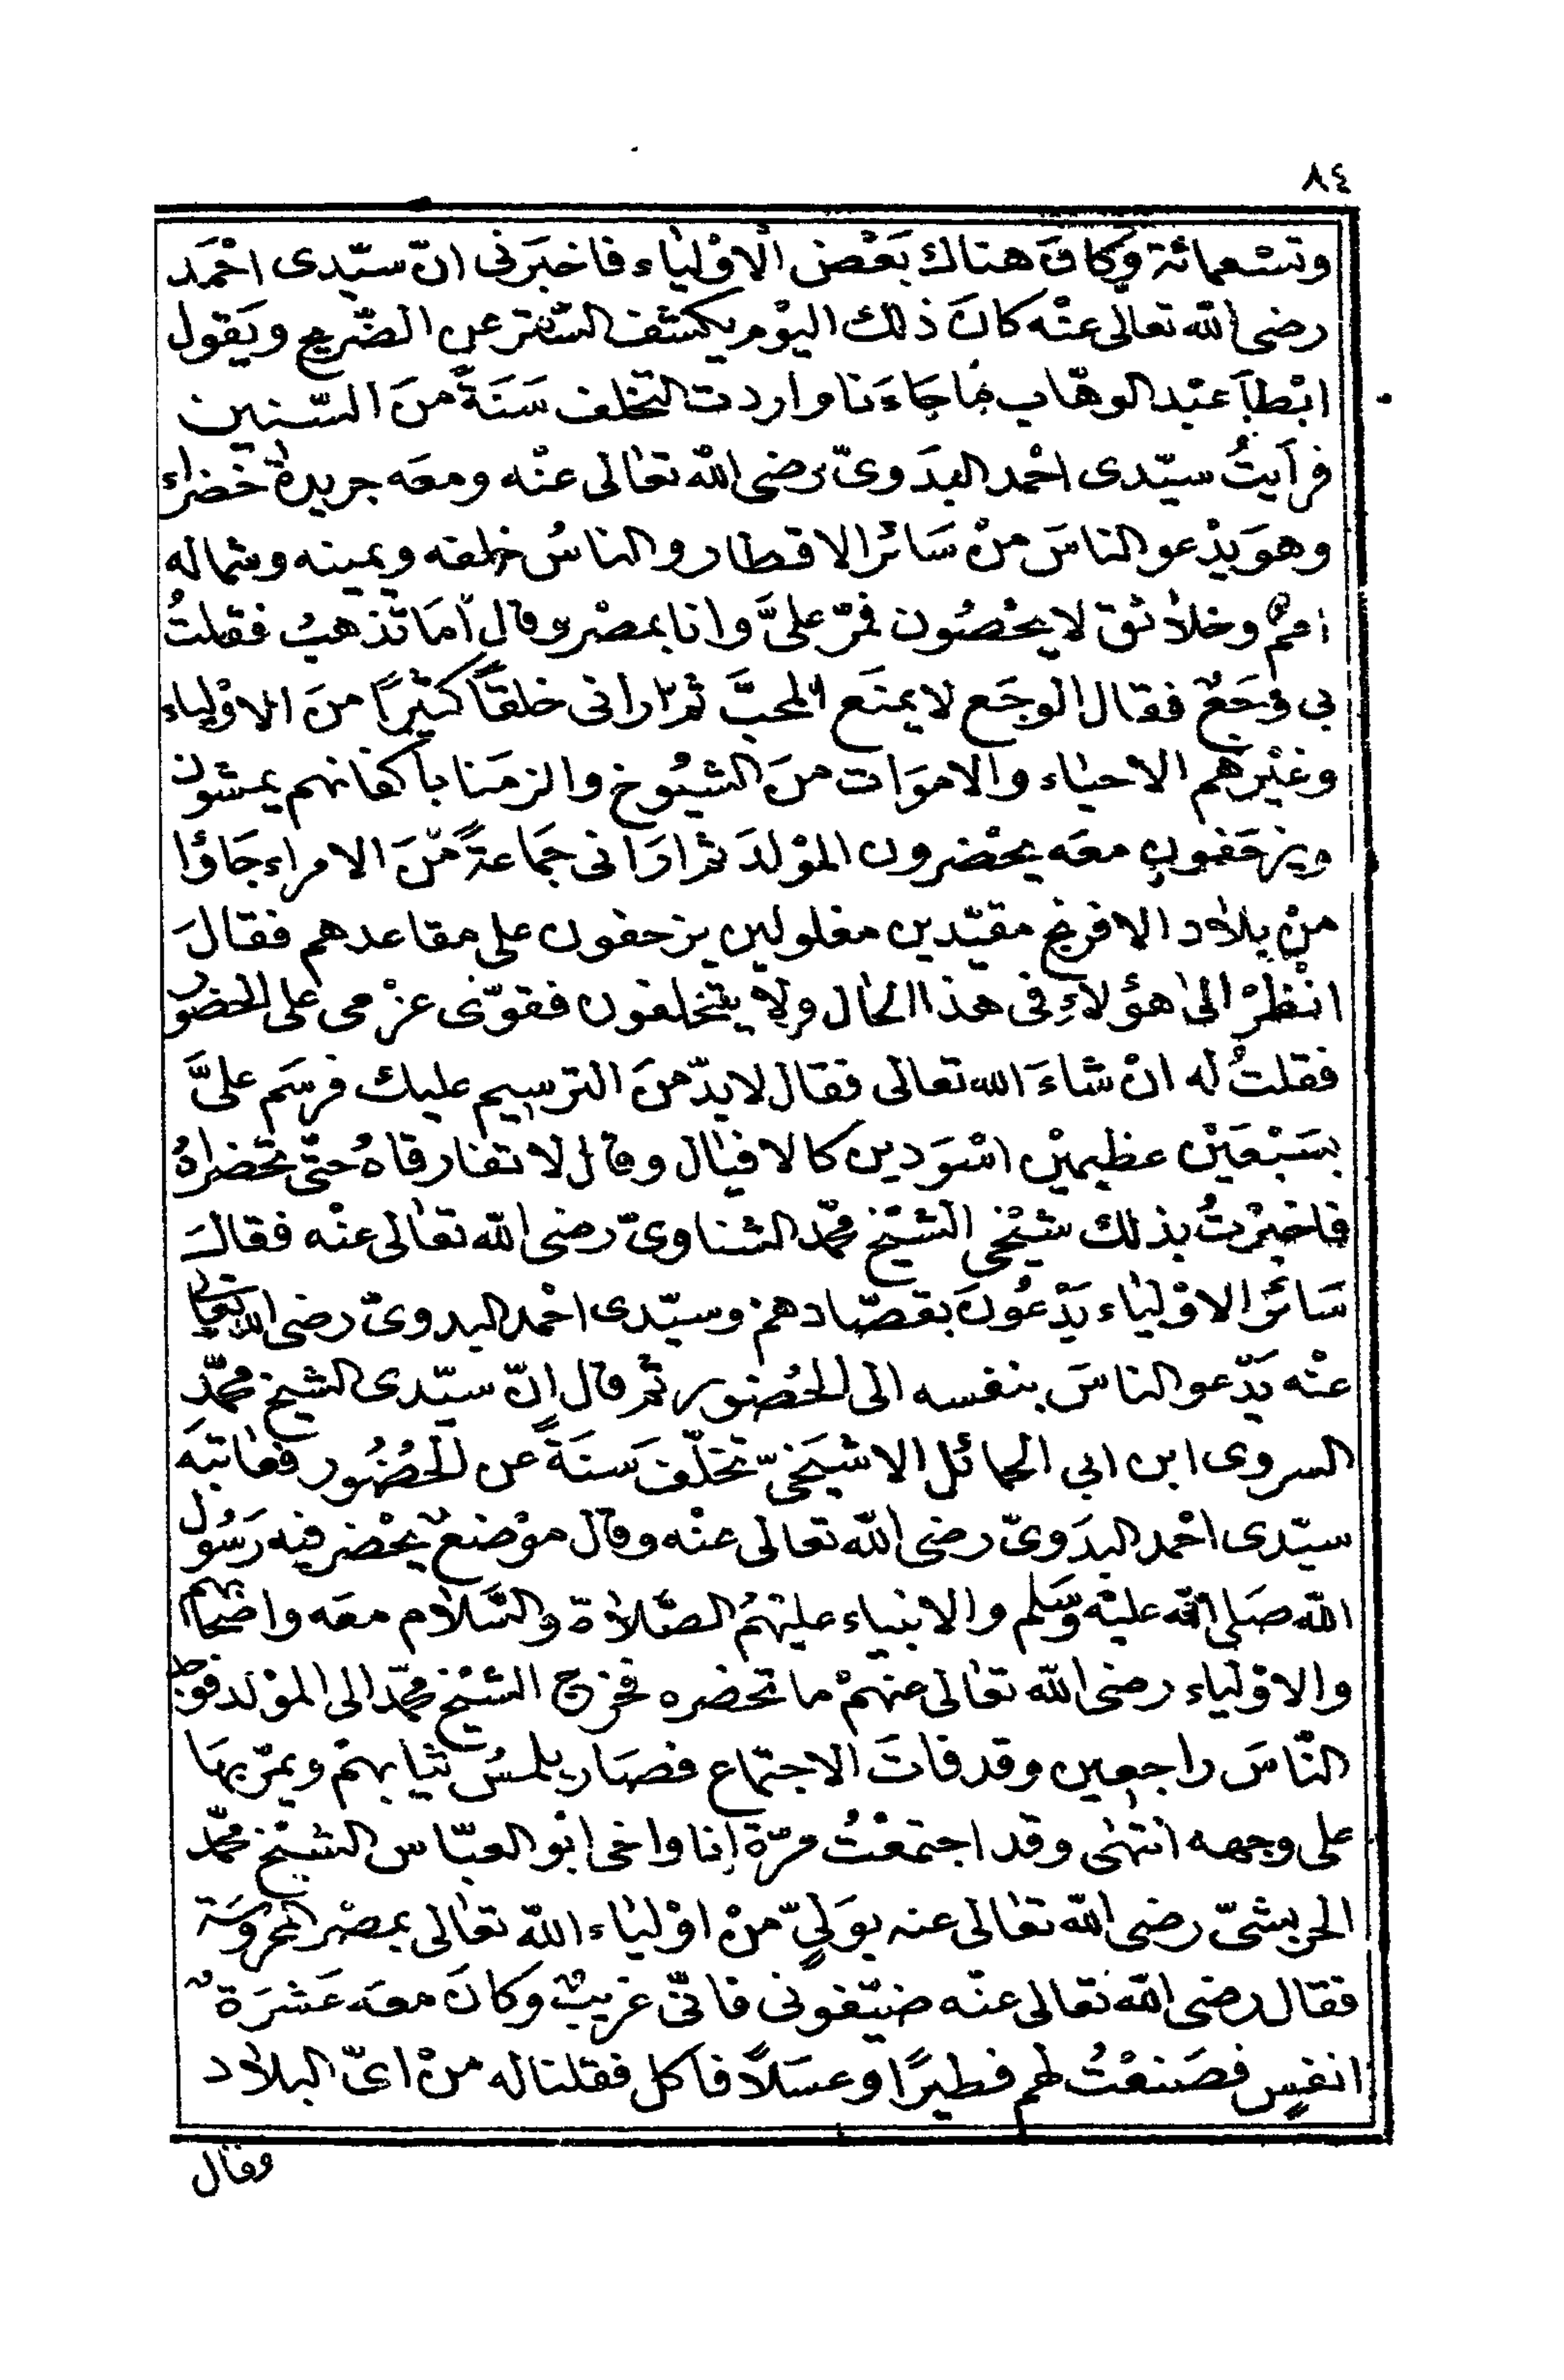 ٨٤
وتسْعمائة وَكانَ هناك بَعْض الاوْلياء فاخبَرنى انّ سيّدى احْمَد
رضى الله تعالى عنْه كانَ ذلك اليوْم يكشف السّتْر عن الضّريح ويَقول
ابْطأَ عبْد الوهّاب مَا جَاءَنا واردت التخلف سَنَةً منَ السّنين
فرأيتُ سيّدى احْمد البدَوىّ رضى الله تعالى عنْه ومعَه جريدة خضراء
وهوَ يدْعو الناسَ منْ سَائر الاقطار والناسُ خلفه ويمينه وشماله
اممٌ وخلائق لا يحْصُون فمرّ علىَّ وانا بمصْر وقال اَمَا تَذهبُ فقلتُ
بى وَجَعٌ فقال الوجَع لا يمنَع المحبَّ ثمّ ارانى خلقًا كثيرًا منَ الاوْلياء
وغيْرهم الاحياء والاموَات منَ الشيُوخ والزمَنا باكفانهم يمشون
ويزحَفون معَه يحْضرون الموْلدَ ثم ارَانى جمَاعةً منَ الامراء جَاؤا
منْ بلاد الافرنج مقيّدين مغلولين يزحفون على مقاعدهم فقالَ
انْظرْ الى هؤلاءِ فى هذا الحال ولا يتخلفون فقوّى عزْمى على الحضور
فقلتُ له انْ شاءَ الله تعالى فقال لا بدّ منَ الترسيم عليك فرسَم علىَّ
بسَبْعَيْن عظيميْن اسْوَدين كالافيال وقال لا تفارقاهُ حتّى تحْضراهُ
فاخبرْتُ بذلك شيْخى الشيْخ محمّد الشناوىّ رضى الله تعالى عنْه فقالَ
سَائر الاوْلياء يَدْعُونَ بقصّادهمْ وسيّدى احْمد البدوىّ رضى الله تعالى
عنْه يَدْعو الناسَ بنفسه الى الحُضور ثم قال انّ سيّدى الشيخ محمّد
السروى ابن ابى الحمائل الاشيَخىّ تخلّفَ سَنَةً عن الحُضُور فعَاتبَه
سيّدى احْمد البدَوىّ رضى الله تعالى عنْه وقال موْضعٌ يحْضر فيه رَسُول
الله صَلى الله عليْه وَسَلم والانبياء عليْهمُ الصّلاة والسَّلام معَه واصْحابهم
والاوْلياء رضى الله تعالى عنهمْ ما تحْضره فخرج الشيْخ محمّد الى الموْلد فوجد
النّاسَ راجعين وقد فاتَ الاجتماع فصَار يلمسُ ثيابهمْ ويمرّ بهَا
على وجهه انتهى وقد اجتمعْتُ مرّة انا واخى ابوالعبّاس الشيْخ محمّد
الحريشىّ رضى الله تعالى عنه بوَلىّ منْ اوْلياء الله تعالى بمصْر المحرُوسَة
فقال رضى الله تعالى عنْه ضيّفونى فانّى غريبٌ وكانَ معَه عَشرَةُ
انفسٍ فصَنعْتُ لهم فطيرًا وعسَلاً فاكل فقلنا له منْ اىّ البلاد
وقال